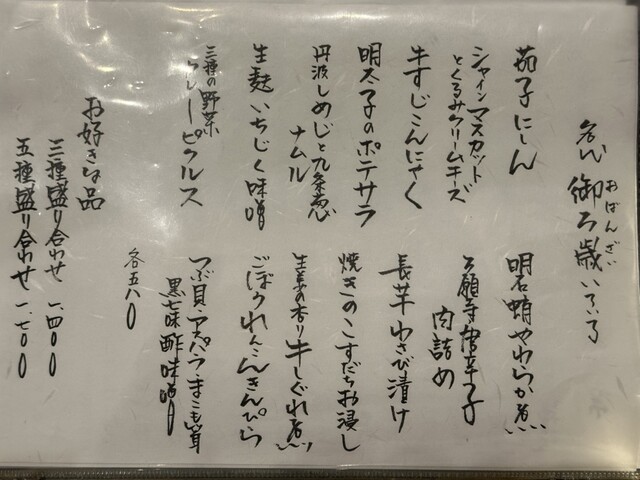 おばんざい
御万歳いろいろ
茄子にしん
シャインマスカット
とくるみクリームチーズ
牛すじこんにゃく
明太子のポテサラ
丹波しめじと九条葱
ナムル
生麩いちじく味噌
三種の野菜
カレーピクルス
明石蛸やわらか煮
万願寺唐辛子
肉詰め
長芋わさび漬け
焼きのこすだちお浸し
生姜の香り牛しぐれ煮
ごぼうれんこんきんぴら
つぶ貝・アスパラ・まこも茸
黒七味酢味噌
各五八〇
お好きな品
三種盛り合わせ 一、四〇〇
五種盛り合わせ 一、七〇〇